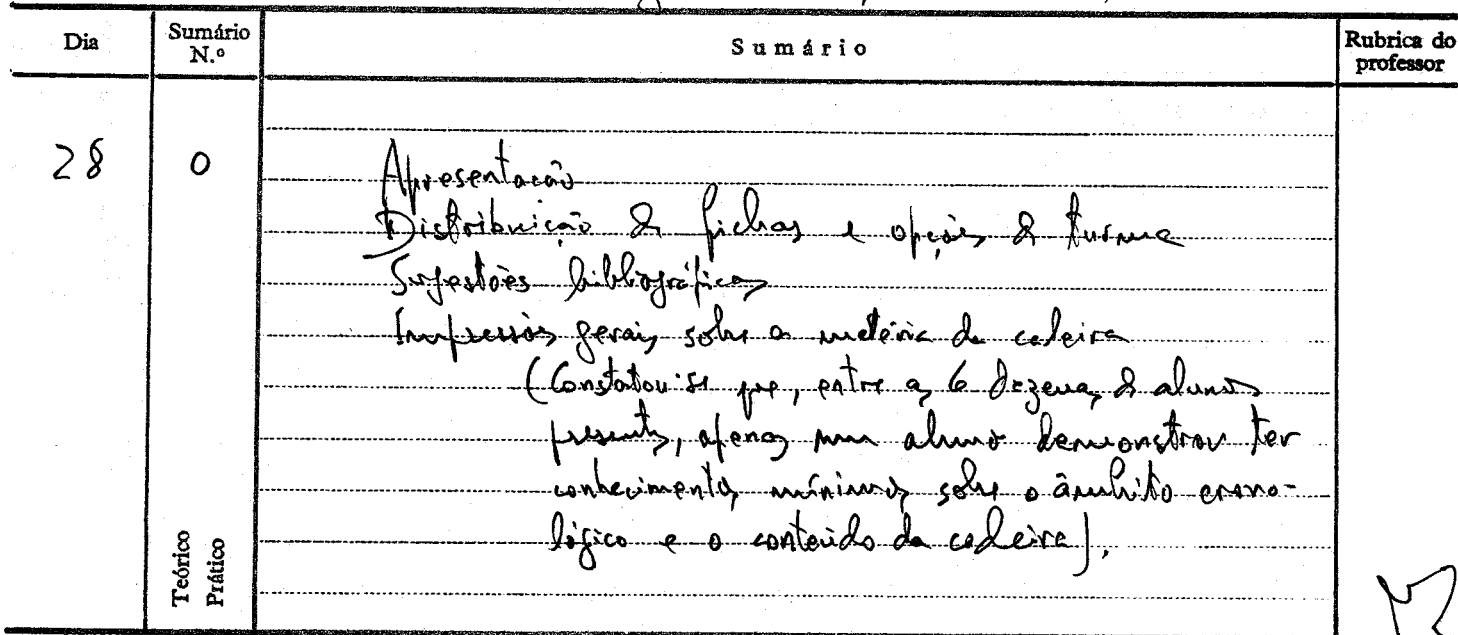 Dia Sumário N.º Sumário Rubrica do professor
28 0 Apresentação
Distribuição de fichas e opções de turma
Sugestões bibliográficas
Impressões gerais sobre a matéria da cadeira
(Constatou-se que, entre as 6 dezenas de alunos
presentes, apenas um aluno demonstrou ter
conhecimentos mínimos sobre o âmbito crono-
lógico e o conteúdo da cadeira).
Teórico
Prático